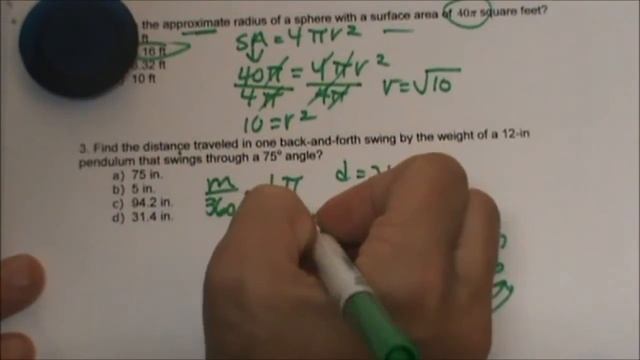 the approximate radius of a sphere with a surface area of 40π square feet?
ft
16 ft
3.32 ft
10 ft
SA = 4πr²
40π = 4πr²
4π 4π
r = √10
10 = r²
3. Find the distance traveled in one back-and-forth swing by the weight of a 12-in
pendulum that swings through a 75° angle?
a) 75 in.
b) 5 in.
c) 94.2 in.
d) 31.4 in.
m
360
d =